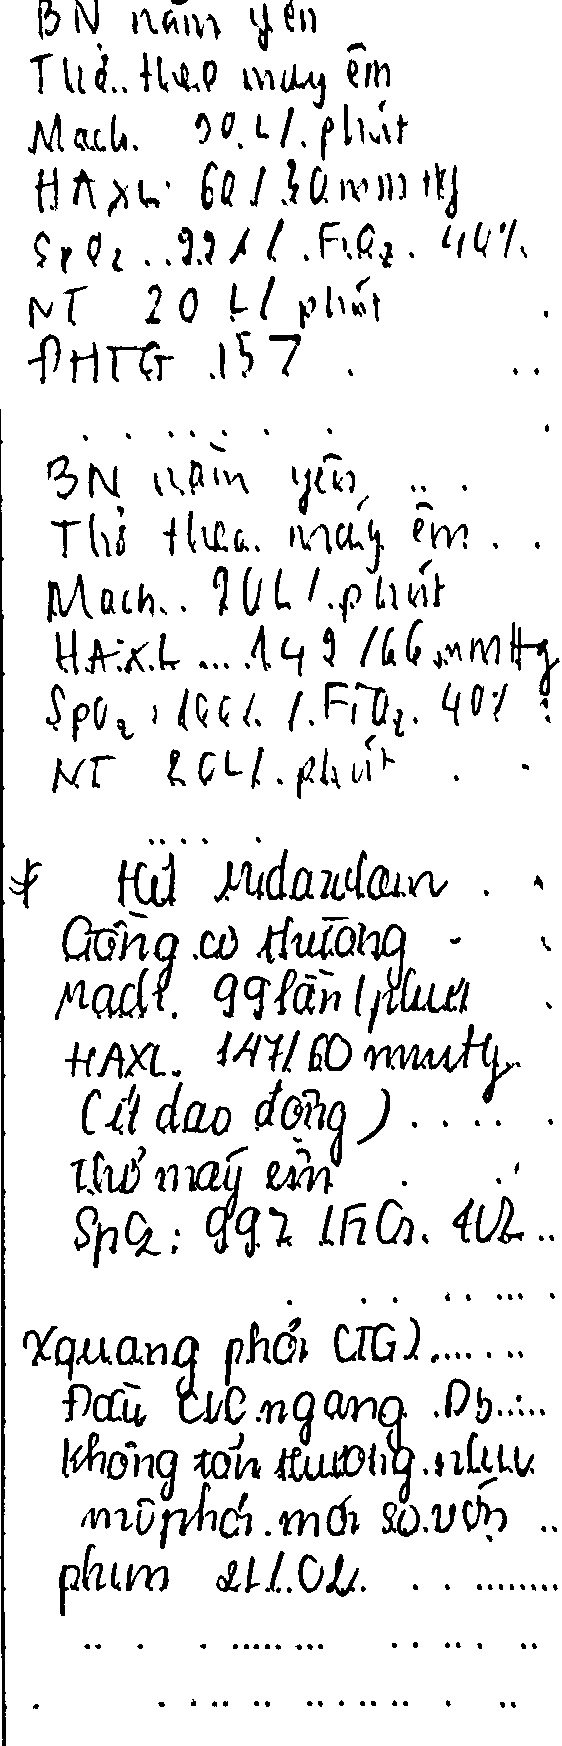 BN nằm yên
Thở theo máy êm
Mạch 90 L/phút
HAXL 60/30 mmHg
SpO2 99% / FiO2 40%
NT 20 L/phút
ĐHTG 157
BN nằm yên
Thở theo máy êm
Mạch 90 L/phút
HAXL 149/66 mmHg
SpO2: 100% / FiO2 40%
NT 20 L/phút
* Hết Midazolam
Gồng cơ thường
Mạch 99 lần/phút
HAXL 147/60 mmHg
(ít dao động)
thở máy êm
SpO2: 99% / FiO2 40%
Xquang phổi (TG)
Đầu CVC ngang D5
không tổn thương nhu
mô phổi mới so với
phim 21/02